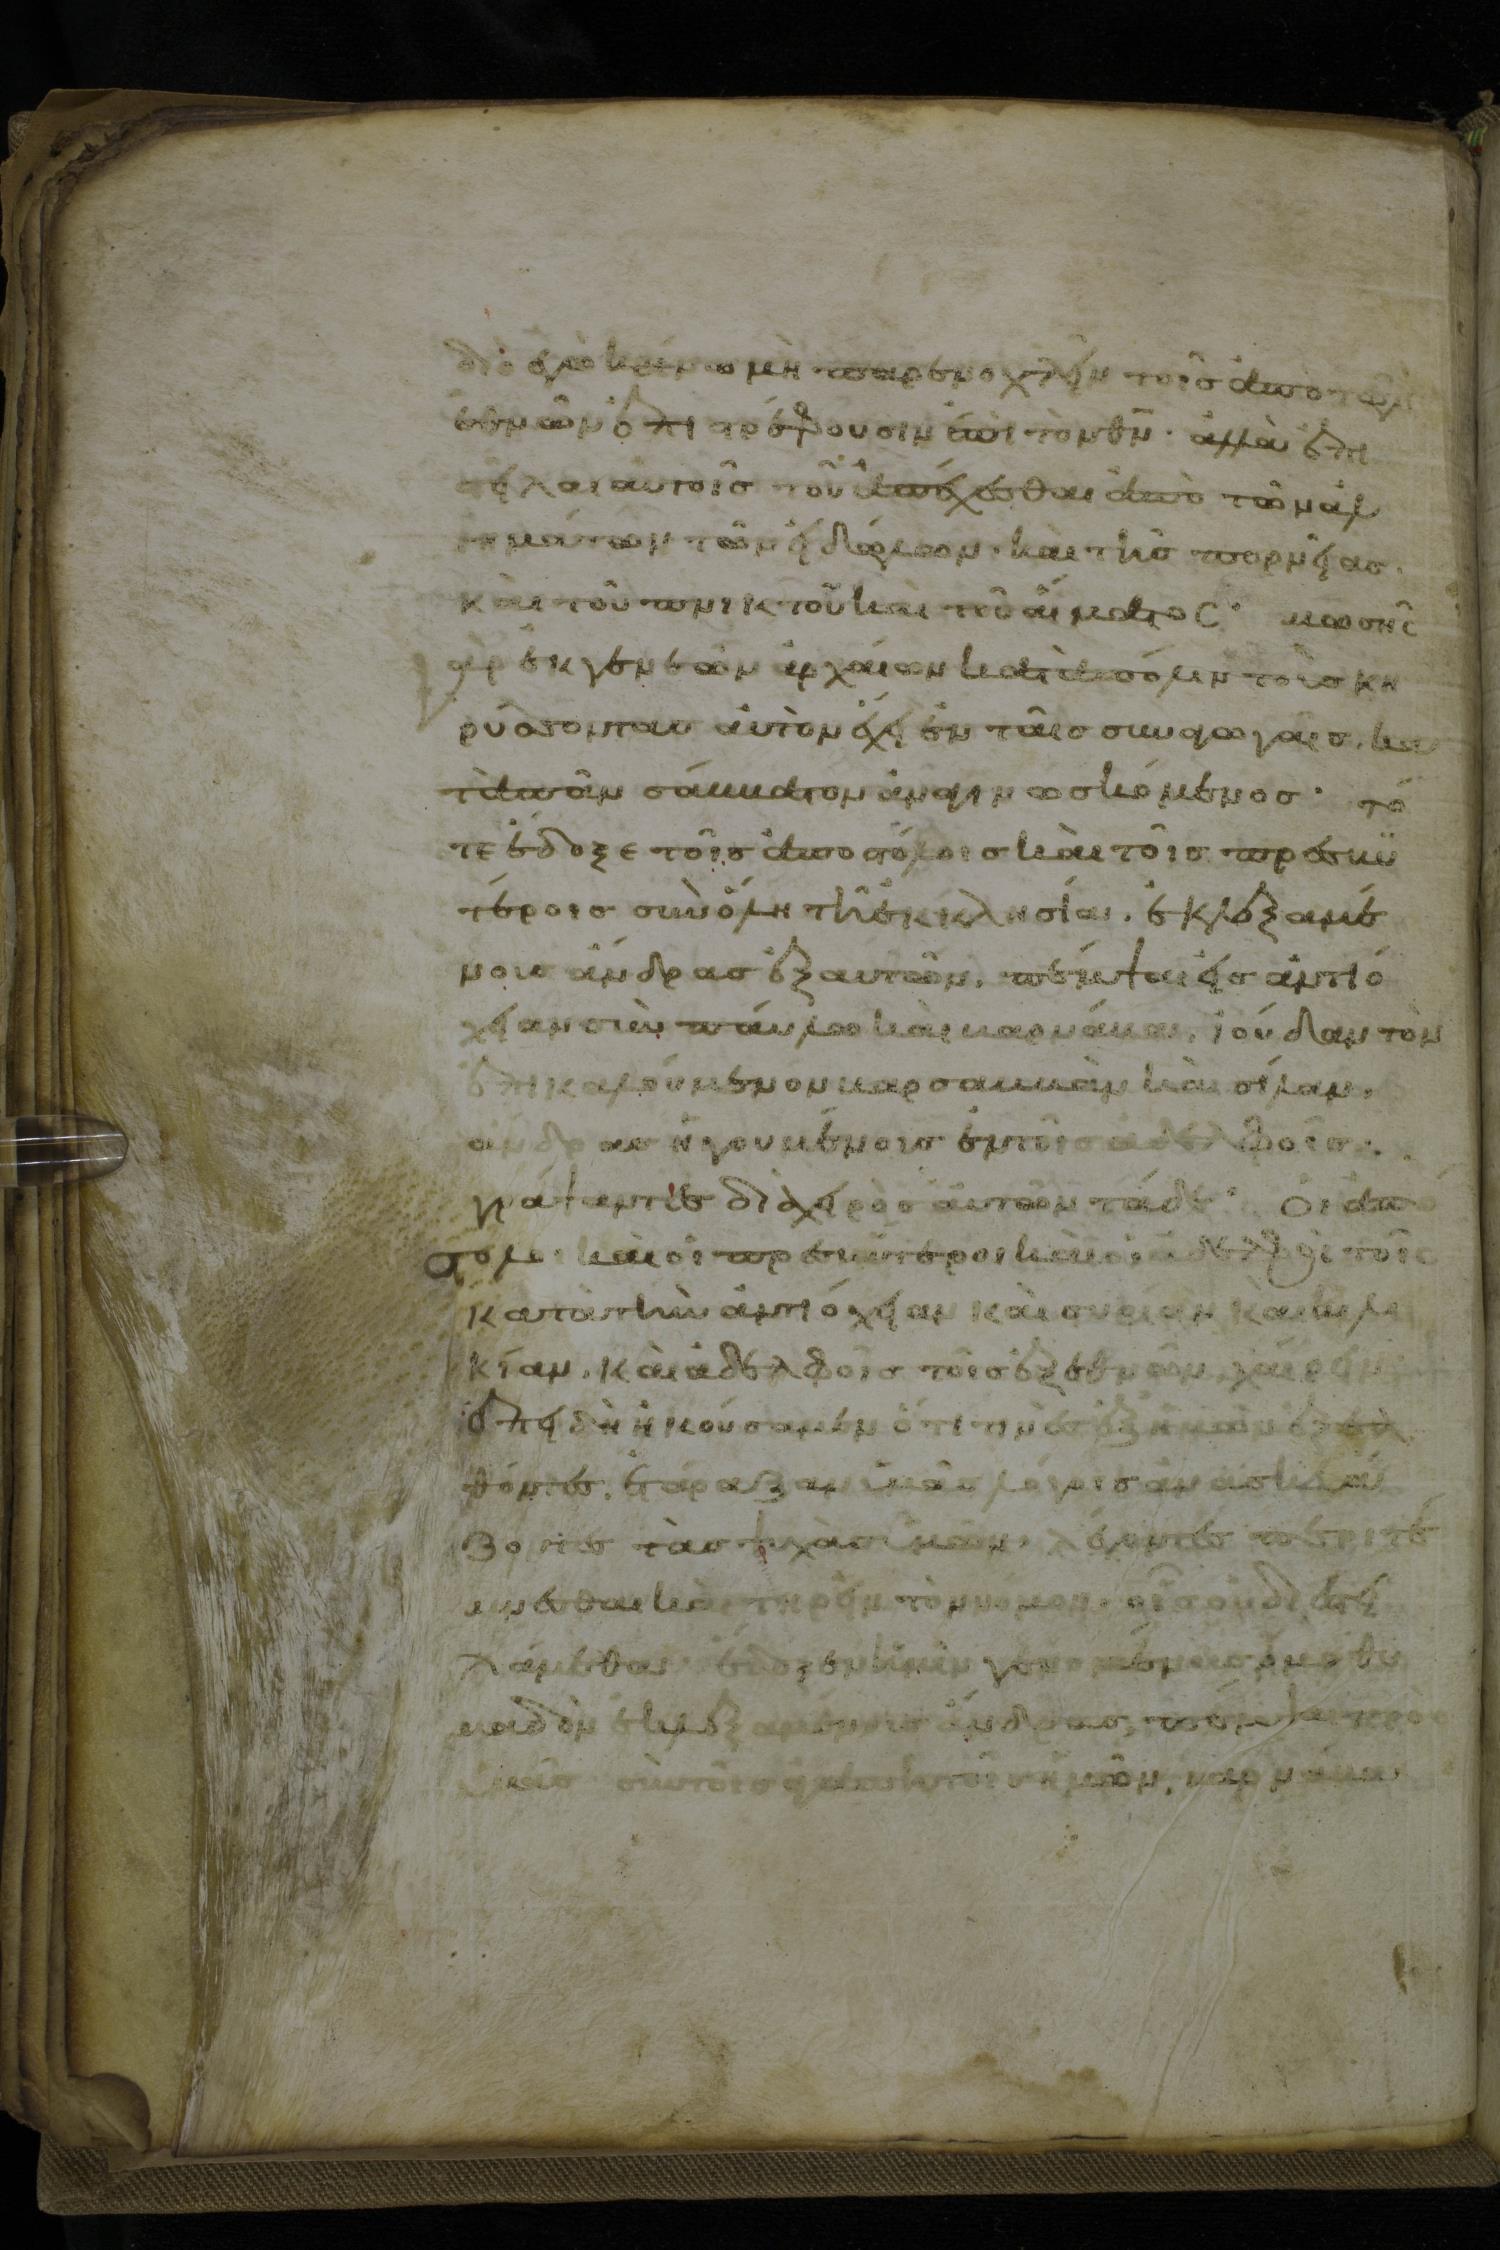 διὸ ἐγὼ κρίνω μὴ παρενοχλεῖν τοῖς ἀπὸ τῶν
ἐθνῶν ἐπιστρέφουσιν ἐπὶ τὸν θν̄· ἀλλὰ ἐπι
στεῖλαι αὐτοῖς τοῦ ἀπέχεσθαι ἀπὸ τῶν ἀλι
γημάτων τῶν εἰδώλων· καὶ τῆς πορνείας·
καὶ τοῦ πνικτοῦ καὶ τοῦ αἵματος· μωσῆς
γὰρ ἐκ γενεῶν ἀρχαίων κατὰ πόλιν τοὺς κη
ρύσσοντας αὐτὸν ἔχει ἐν ταῖς συναγωγαῖς, κα
τὰ πᾶν σάββατον ἀναγινωσκόμενος· τό
τε ἔδοξε τοῖς ἀποστόλοις καὶ τοῖς πρεσβυ
τέροις σὺν ὅλη τῆ ἐκκλησία, ἐκλεξαμέ
νοις ἄνδρας ἐξ αὐτῶν, πέμψαι εἰς ἀντιό
χειαν σὺν παύλω καὶ βαρνάβα, ἰούδαν τὸν
ἐπικαλούμενον βαρσαββᾶν καὶ σίλαν,
ἄνδρας ἡγουμένους ἐν τοῖς ἀδελφοῖς,
γράψαντες διὰ χειρὸς αὐτῶν τάδε· Οἱ ἀπό
στολοι καὶ οἱ πρεσβύτεροι καὶ οἱ ἀδελφοὶ τοῖς
κατὰ τὴν ἀντιόχειαν καὶ συρίαν καὶ κιλι
κίαν, καὶ ἀδελφοῖς τοῖς ἐξ ἐθνῶν, χαίρειν·
ἐπειδὴ ἠκούσαμεν ὅτι τινὲς ἐξ ἡμῶν ἐξελ
θόντες, ἐτάραξαν ὑμᾶς λόγοις ἀνασκευά
ζοντες τὰς ψυχὰς ὑμῶν, λέγοντες περιτέ
μνεσθαι καὶ τηρεῖν τὸν νόμον, οἷς οὐ διεστει
λάμεθα· ἔδοξεν ἡμῖν γενομένοις ὁμοθυ
μαδὸν ἐκλεξαμένοις ἄνδρας, πέμψαι πρὸς
ὑμᾶς σὺν τοῖς ἀγαπητοῖς ἡμῶν, βαρνάβα